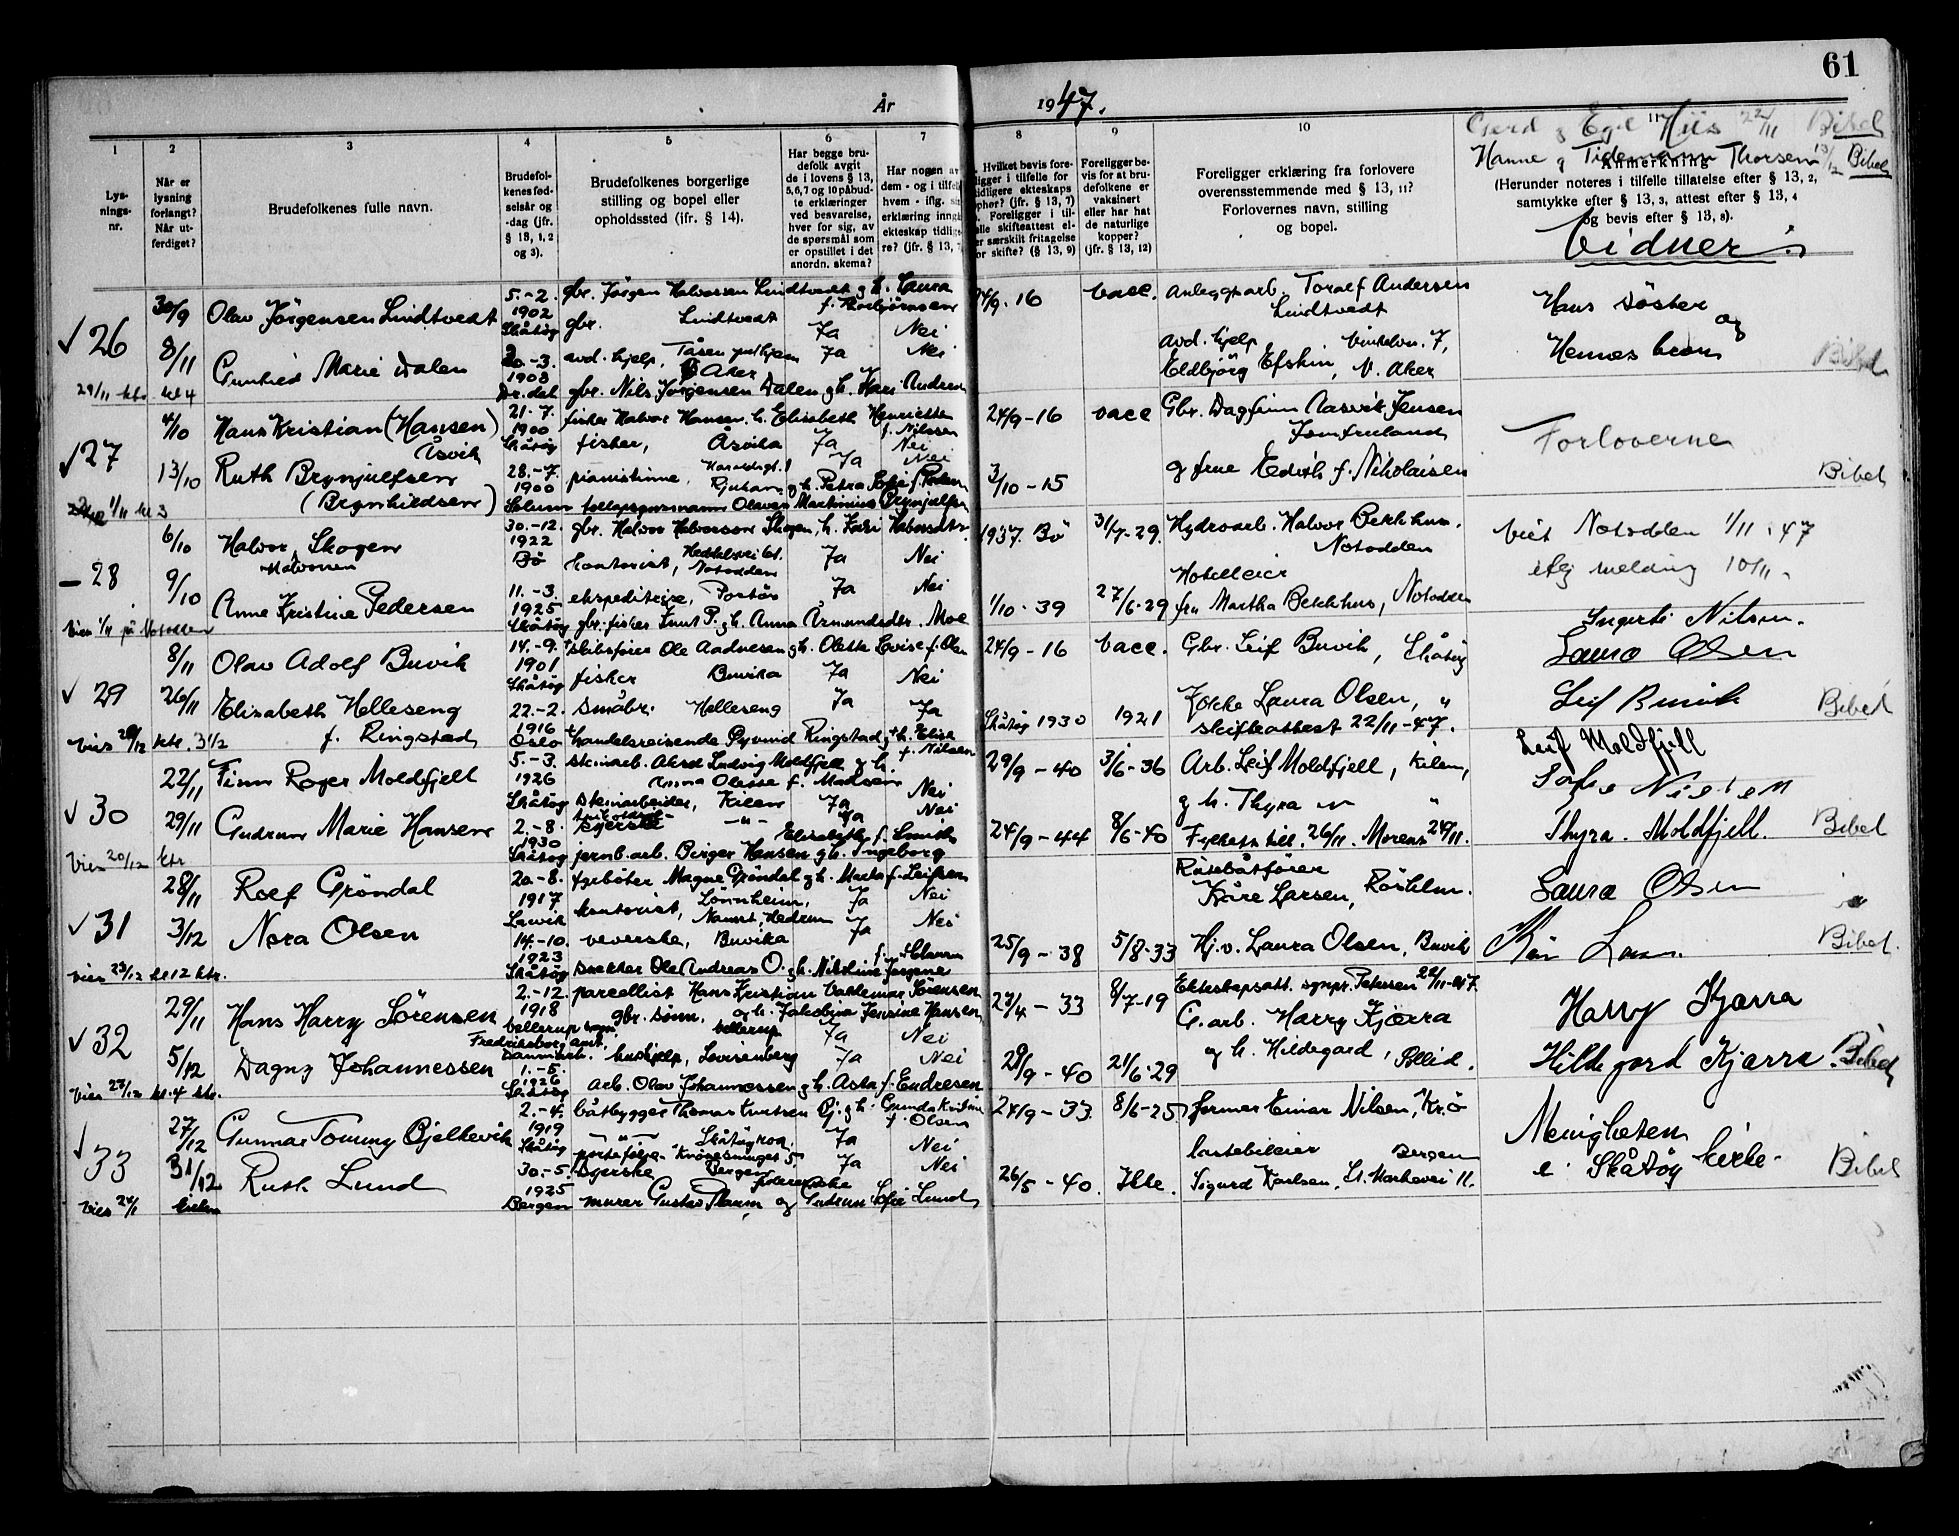 61
År 1947.
Gerd & Egil Hiis 22/11 Bibel
Hanne & Tidemann Thorsen 13/12 Bibel
1 2 3 4 5 6 7 8 9 10 11
Lysnings-nr.
Når er lysning forlangt? Når utferdiget?
Brudefolkenes fulle navn.
Brudefolkenes fødselsår og -dag (jfr. § 13, 1, 2 og 3).
Brudefolkenes borgerlige stilling og bopel eller opholdssted (jfr. § 14).
Har begge brudefolk avgit de i lovens § 13, 5, 6, 7 og 10 påbudte erklæringer ved besvarelse, hver for sig, av de spørsmål som er opstillet i det anordn. skema?
Har nogen av dem - og i tilfelle hvem - iflg. sin erklæring inngått ekteskap tidligere? (jfr. § 13, 7)
Hvilket bevis foreligger i tilfelle for tidligere ekteskaps ophør? (jfr. § 13, 7) Foreligger i tilfelle skifteattest eller særskilt fritagelse for skifte? (§ 13, 9)
Foreligger bevis for at brudefolkene er vaksinert eller har hat de naturlige kopper? (jfr. § 13, 12)
Foreligger erklæring fra forlovere overensstemmende med § 13, 11? Forlovernes navn, stilling og bopel.
Anmerkning (Herunder noteres i tilfelle tillatelse efter § 13, 2, samtykke efter § 13, 3, attest efter § 13, 4 og bevis efter § 13, 8).
Vidner:
✓ 26 30/9 Olav Jörgensen Lindtvedt 5.-2. 1902 Skåtöy gbr. Jörgen Halvorsen Lindtvedt g h. Laura f. Torbjörnsen
gbr. Lindtvedt Ja Nei 24/9-16 Vacc. Anleggsarb. Toralf Andersen Lindtvedt Hans Söster og
8/11 Gunhild Marie Dalen 20.-3. 1903 Dr.dal avd. hjelp, Tåsen Aker Ja Nei avd. hjelp Eldbjörg Efskin, V. Aker Bibel
29/11 ktr. kl 4 gbr. Nils Jörgensen Dalen g h. Kari
✓ 27 4/10 Hans Kristian (Hansen) Åsvik 21-7. 1900 Skåtöy fisker Halvor Hansen. h. Elisabeth Henriette f. Nilssen
fisker, Åsvika Ja Nei 24/9-16 vacc Gbr. Dagfinn Jensen Jomfruland Forloverne
13/10 Ruth Brynjulfsen (Brynhildsen) 28.-7. 1900 Solum pianistinne, Rjukan Ja Nei 3/10-15 g frue Edith f. Nikolaisen Bibel
1/11 kl 3 g h. Petra Sofie tollopsynsmann Olaves Martinius Brynjulfsen
— 28 6/10 Halvor Halvorsen Skogen 30.-12. 1922 Bö gbr. Halvor Halvorsen Skogen, h. Kari Halvorsdtr.
kontorist, Notodden Ja Nei 1937. Bö 31/7-29. Hydroarb. Halvor Berkhus. Notodden Viet Notodden 1/11.47
9/10 Anne Kristine Pedersen 11.-3. 1925 Skåtöy ekspeditrise, Portör Ja Nei 1/10.39 27/6-29 Hotelleier fru Martha Berkhus, Notodden iflg melding 10/11.
Viet 1/11 på Notodden gbr. fisker Knut P. g h. Anna Åsmundsdtr. Moe
✓ 29 8/11 Olav Adolf Buvik 14.-9. 1901 Skåtöy skibsfører Ole Aadnesen g h. Olette Lovise f. Olsen
fisker Buvika Ja Nei 24/9-16 Vacc. Gbr. Leif Buvik, Skåtöy Ingerti Nilsen.
Laura Olsen
26/11 Elisabeth Helleseng f. Ringstad 22.-2. 1916 Oslo småbr. Helleseng Ja Ja Skåtöy 1930 1921 Laura Olsen, " skifteattest 22/11-47. Leif Buvik Bibel
Vies 20/12 ktr. 3 1/2 handelsreisende Öyvind Ringstad g h. Elise f. Nilsen
✓ 30 22/11 Finn Roger Moldfjell 5.-3. 1926 Skåtöy steinarb. Aksel Ludvig Moldfjell g h. Anna Olesse f. Madsen
steinarbeider, Kilen Ja Nei 29/9-40 3/6-36 Arb. Leif Moldfjell, Kilen, g h. Thyra " " Leif Moldfjell
29/11 Gudrun Marie Hansen 2.-8. 1930 Skåtöy syerske -"- Ja Nei 24/9-44 8/6-40 Fylkets till. 26/11. Thyra. Moldfjell. Bibel
Vies 20/12 ktr jernb.arb. Birger Hansen g h. Ingeborg Elisabeth f. Lunde
✓ 31 28/11 Rolf Gröndal 20.-8. 1917 Larvik Magne Gröndal g h. Marta f. Leifsen
kontorist, Lönnheim, Nanset, Hedrum Ja Nei Rutebåtförer Kåre Larsen, Laura Olsen
3/12 Nora Olsen 14.-10. 1923 Skåtöy veverske, Buvika Ja Nei 25/9-38 5/8-33 Hj.v. Laura Olsen, Buvik Bibel.
vies 23/12 kl 12 ktr. snekker Ole Andreas O. g h. Nikoline Jörgine
✓ 32 29/11 Hans Harry Sörensen 2.-12. 1918 Fredriksborg amt, Danmark. parcellist Hans Kristian Valdemar Sörensen og h. Jakobine Jensine Hansen
gbr. sönn, Ja Nei 23/4-33 8/7-19 Ekteskapsatt. sognpr. Petersen 22/11-47. G.arb. Harry Kjærra Harry Kjærra
5/12 Dagny Johannessen 1.-5. 1926 Skåtöy hushjelp, Lovisenberg Ja Nei 29/9-40 21/6-29 og h. Hildegard, Hildegard Kjærra. Bibel
Vies 23/12 kl. 4 ktr. arb. Olav Johannessen g h. Asta f. Endresen
✓ 33 27/12 Gunnar Tommy Bjelkevik 2.-4. 1919 Skåtöy båtbygger Thomas Knutsen Bj. g h. Gunda Kristine f. Olsen
Ja Nei 24/9-33 8/6-25 former Einar Nilsen, Kr.ö Menigheten
31/12 Ruth Lund 30.-5. 1925 Bergen syerske Bergen Ja Nei 26/5-40. Ikke. lastebileier Bergen Sigurd Karlsen, i Skåtöy kirke. Bibel
Vies 24/1 kirken murer Gustav og Gudrun Sofie Lund